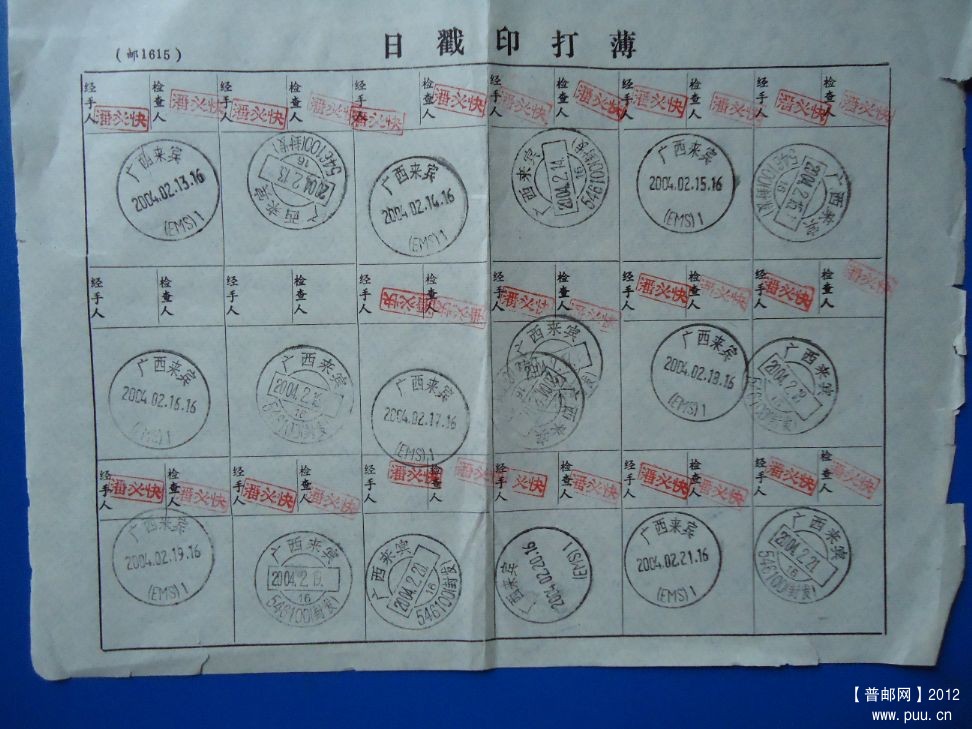 (邮1615)
日戳印打薄
经手人 检查人 经手人 检查人 经手人 检查人 经手人 检查人 经手人 检查人 经手人 检查人
潘火快 潘火快 潘火快 潘火快 潘火快 潘火快 潘火快 潘火快 潘火快 潘火快 潘火快 潘火快
广西来宾
2004.02.13.16
(EMS)1
广西来宾
2004.2.13
16
546100(封发)
广西来宾
2004.02.14.16
(EMS)1
广西来宾
2004.2.14
16
546100(封发)
广西来宾
2004.02.15.16
(EMS)1
广西来宾
16
546100(封发)
经手人 检查人 经手人 检查人 经手人 检查人 经手人 检查人 经手人 检查人 经手人 检查人
潘火快 潘火快 潘火快 潘火快 潘火快 潘火快 潘火快 潘火快
广西来宾
2004.02.16.16
(EMS)1
广西来宾
2004.2.16
16
546100(封发)
广西来宾
2004.02.17.16
(EMS)1
广西来宾
广西来宾
2004.02.18.16
(EMS)1
广西来宾
16
546100(封发)
经手人 检查人 经手人 检查人 经手人 检查人 经手人 检查人 经手人 检查人 经手人 检查人
潘火快 潘火快 潘火快 潘火快 潘火快 潘火快 火快 潘火快 潘火快 潘火快 潘火快 潘火快
广西来宾
2004.02.19.16
(EMS)1
广西来宾
2004.2.19
16
546100(封发)
广西来宾
2004.2.20
16
546100(封发)
广西来宾
2004.02.20.16
(EMS)1
广西来宾
2004.02.21.16
(EMS)1
广西来宾
2004.2.21
16
546100(封发)
【普邮网】2012
www.puu.cn